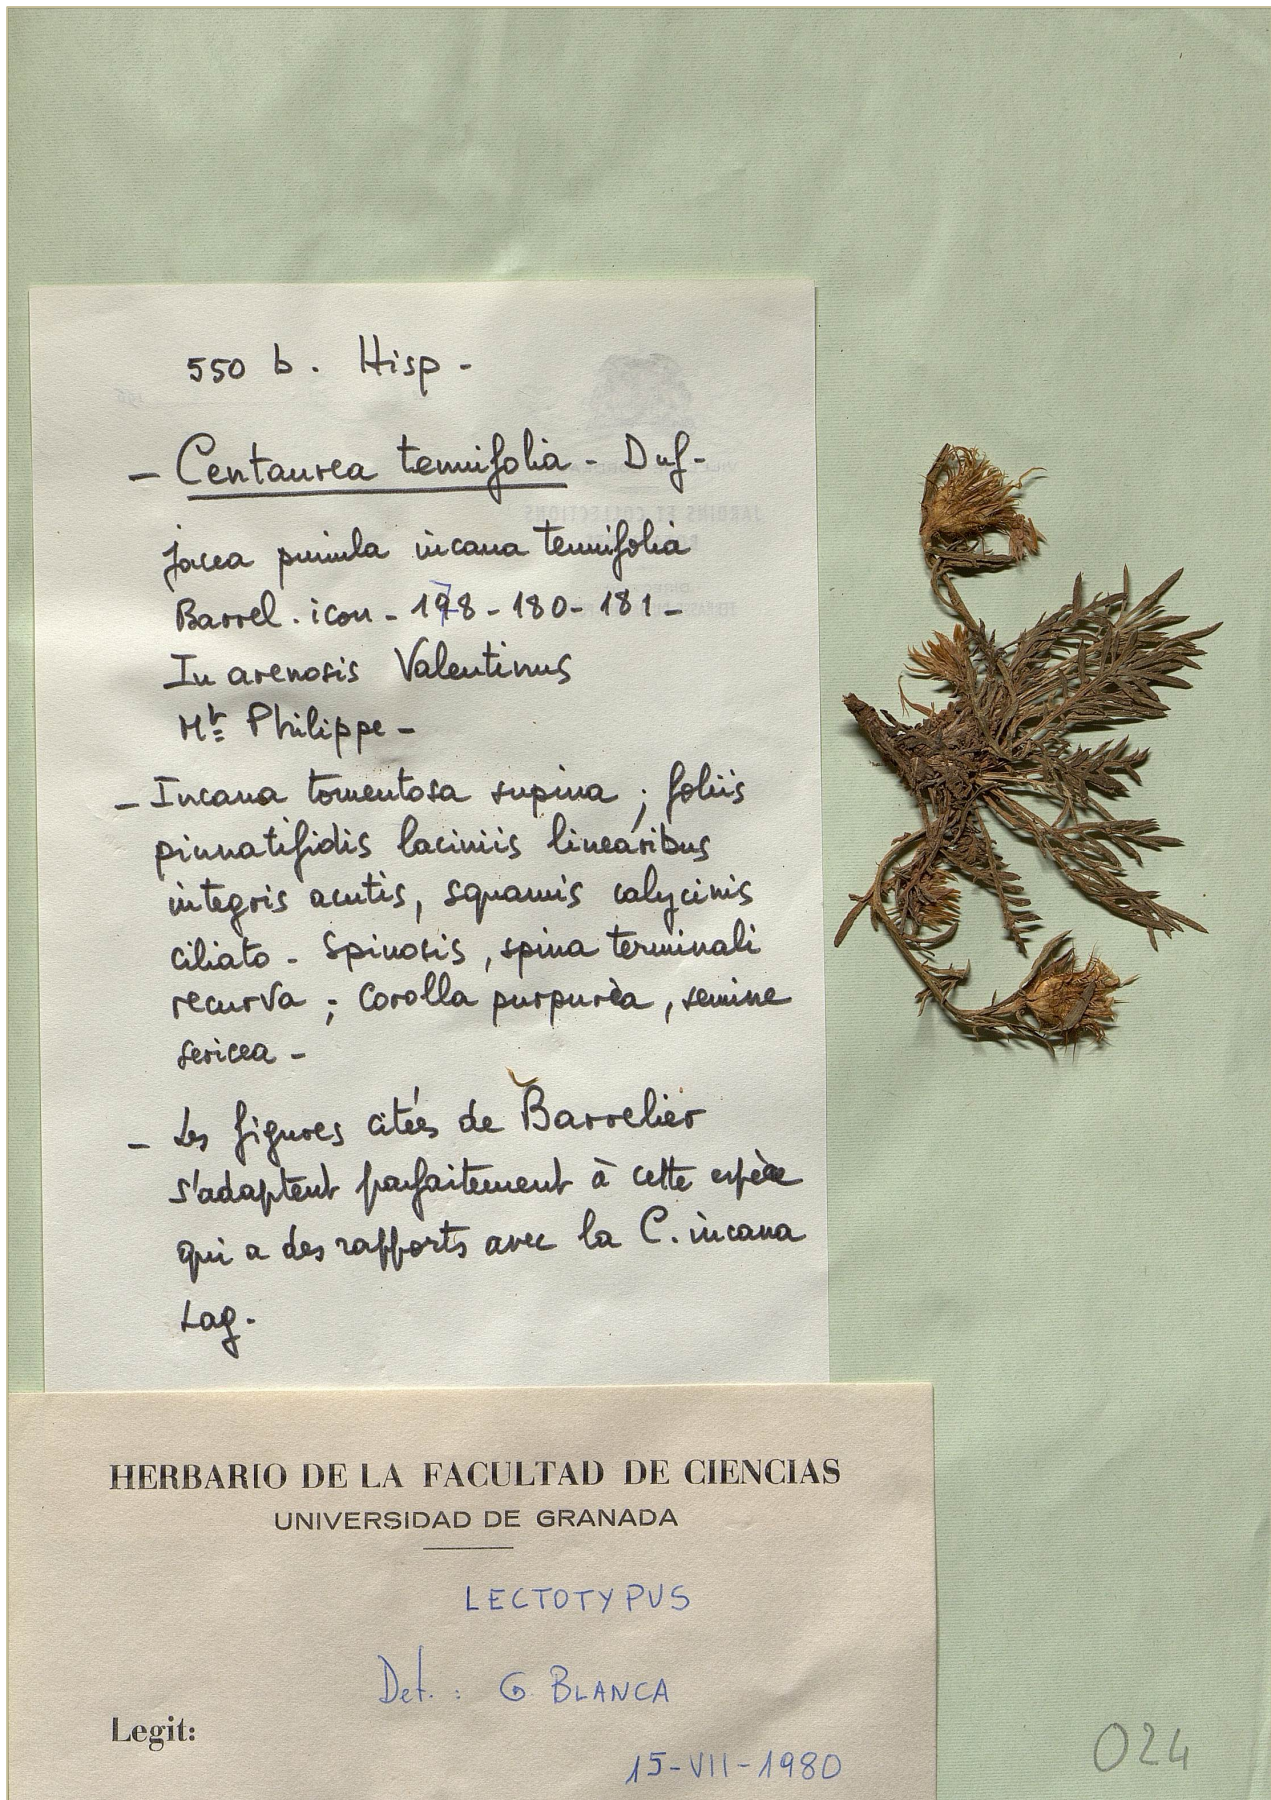 550 b. Hisp -
- Centaurea tenuifolia - Duf-
jacea pumila incana tenuifolia
Barrel. icon - 178 - 180 - 181 -
In arenosis Valentinus
Mr Philippe -
- Incana tomentosa supina ; foliis
pinnatifidis laciniis linearibus
integris acutis, squamis calycinis
ciliato - spinosis, spina terminali
recurva ; corolla purpurèa, semine
sericea -
- Les figures citées de Barrelier
s'adaptent parfaitement à cette espèce
qui a des rapports avec la C. incana
Lag.
HERBARIO DE LA FACULTAD DE CIENCIAS
UNIVERSIDAD DE GRANADA
LECTOTYPUS
Det. : G. BLANCA
Legit:
15-VII-1980
024